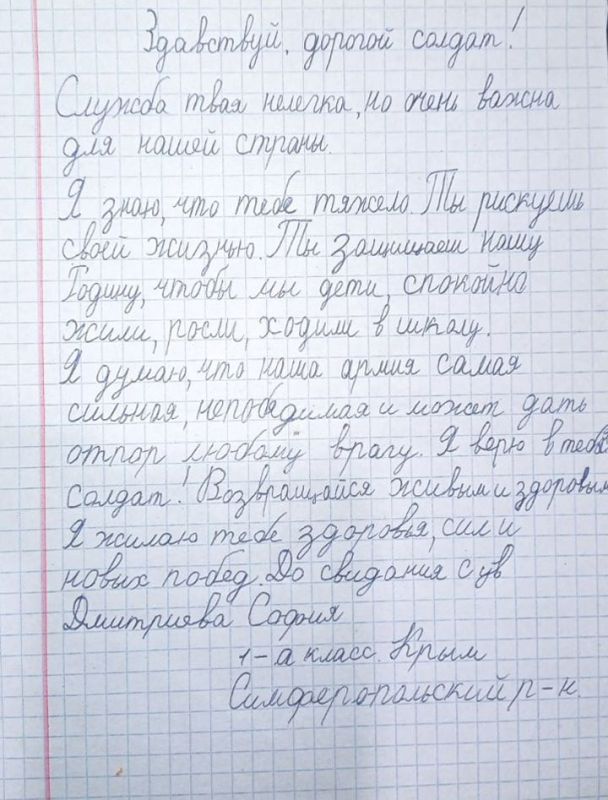 Здавствуй, дорогой солдат!
Служба твая нелегка, но очень важна
для нашей страны
Я знаю, что тебе тяжело. Ты рискуешь
своей жизнью. Ты защищаеш нашу
Родину, чтобы мы дети, спокойно
жили, росли, ходили в школу.
Я думаю, что наша армия самая
сильная, непобедимая и может дать
отпор любому врагу. Я верю в тебя
солдат! Возвращайся живым и здоровым
Я жилаю тебе здоровья, сил и
новых побед. До свидания с ув
Дмитриева София
1-а класс. Крым
Симферопольский р-н.